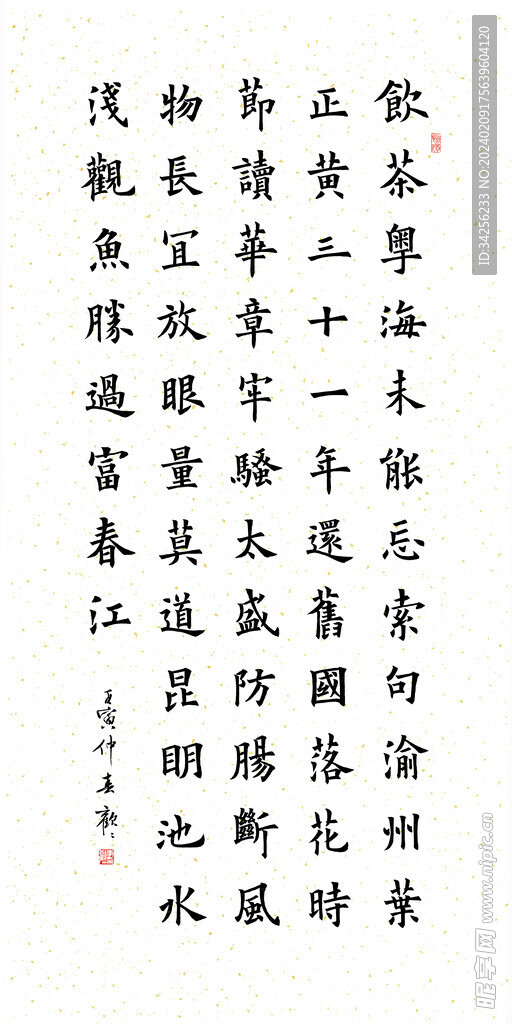 飲茶粵海未能忘索句渝州葉
正黄三十一年還舊國落花時
節讀華章牢騷太盛防腸斷風
物長宜放眼量莫道昆明池水
淺觀魚勝過富春江
寅仲春
ID:34256233 NO:20240209175639604120
昵享网 www.nipic.cn